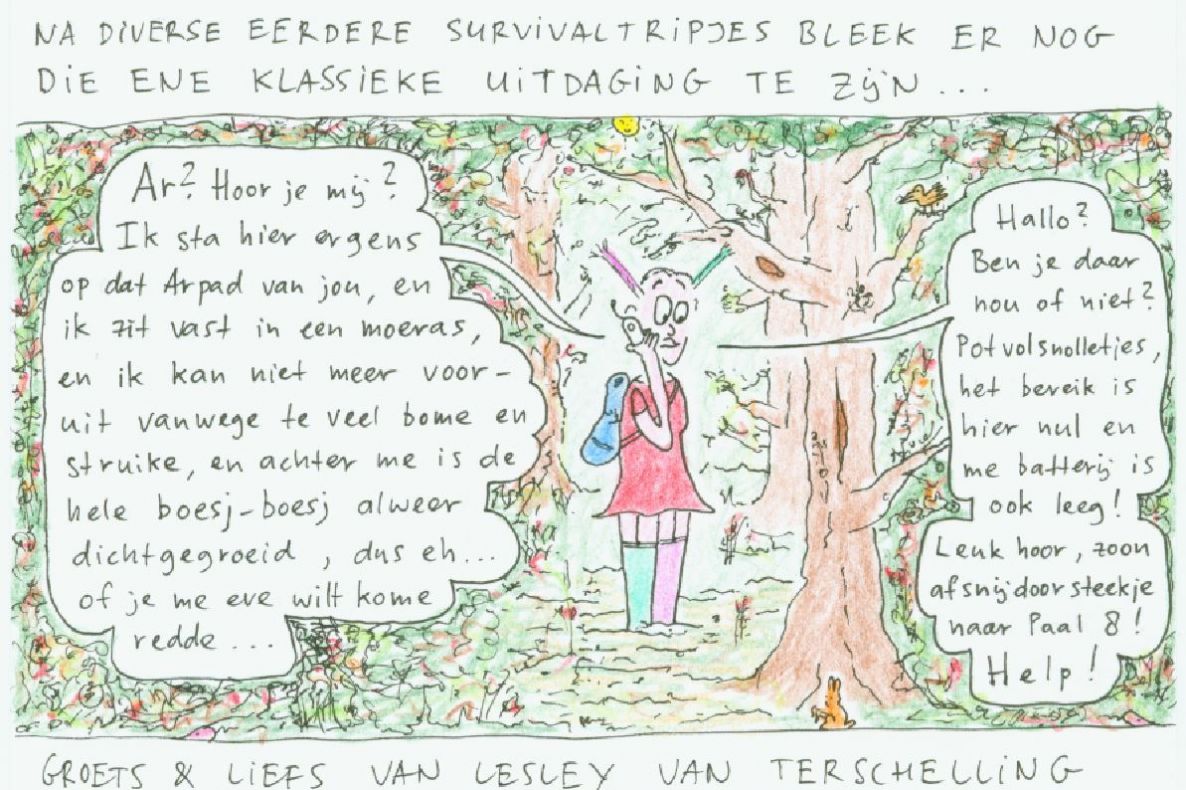 NA DIVERSE EERDERE SURVIVALTRIPJES BLEEK ER NOG
DIE ENE KLASSIEKE UITDAGING TE ZIJN...
Ar? Hoor je mij?
Ik sta hier ergens
op dat Arpad van jou, en
ik zit vast in een moeras,
en ik kan niet meer voor-
uit vanwege te veel bome en
struike, en achter me is de
hele boesj-boesj alweer
dichtgegroeid, dus eh...
of je me eve wilt kome
redde...
Hallo?
Ben je daar
nou of niet?
Potvolsnolletjes,
het bereik is
hier nul en
me batterij is
ook leeg!
Leuk hoor, zoon
afsnijdoorsteekje
naar Paal 8!
Help!
GROETS & LIEFS VAN LESLEY VAN TERSCHELLING